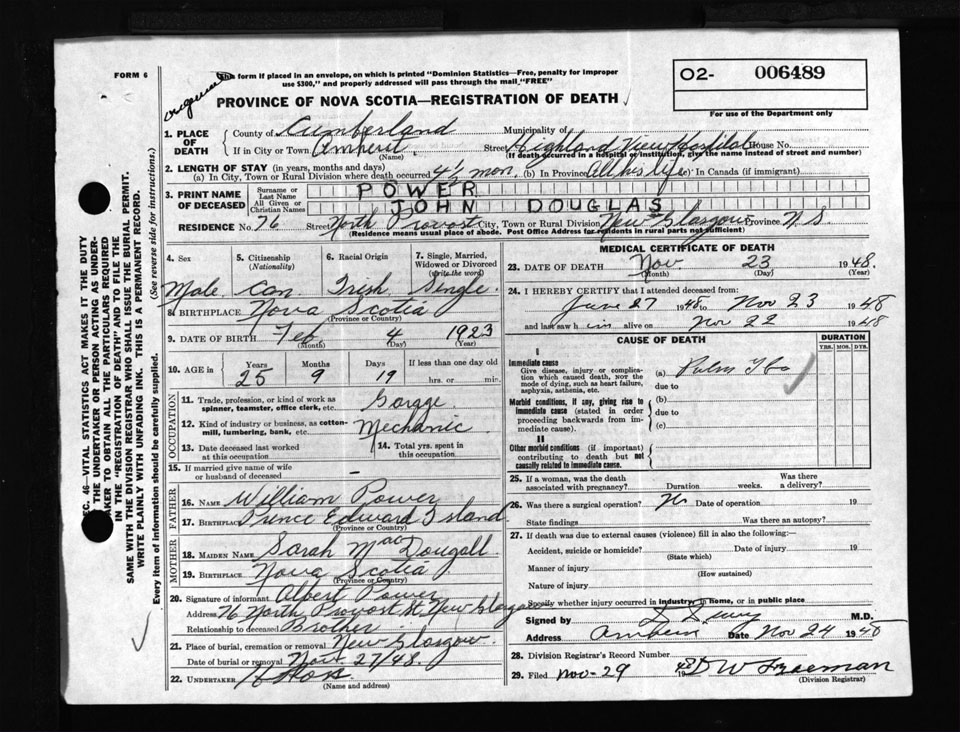 FORM 6
original
This form if placed in an envelope, on which is printed "Dominion Statistics—Free, penalty for improper
use $300," and properly addressed will pass through the mail "FREE"
O2- 006489
For use of the Department only
PROVINCE OF NOVA SCOTIA—REGISTRATION OF DEATH
SEC. 46—VITAL STATISTICS ACT MAKES IT THE DUTY
OF THE UNDERTAKER OR PERSON ACTING AS UNDER-
TAKER TO OBTAIN ALL THE PARTICULARS REQUIRED
IN THE "REGISTRATION OF DEATH" AND TO FILE THE
SAME WITH THE DIVISION REGISTRAR WHO SHALL ISSUE THE BURIAL PERMIT.
WRITE PLAINLY WITH UNFADING INK. THIS IS A PERMANENT RECORD.
(See reverse side for instructions.)
Every item of information should be carefully supplied.
1. PLACE OF DEATH County of Cumberland Municipality of
If in City or Town Amherst (Name) Street Highland View Hospital House No.
(If death occurred in a hospital or institution, give the name instead of street and number)
2. LENGTH OF STAY (in years, months and days)
(a) In City, Town or Rural Division where death occurred 4½ mon, (b) In Province All his life (c) In Canada (if immigrant)
3. PRINT NAME OF DECEASED Surname or Last Name POWER
All Given or Christian Names JOHN DOUGLAS
RESIDENCE No. 76 Street North Provost City, Town or Rural Division New Glasgow Province N.S.
(Residence means usual place of abode. Post Office Address for residents in rural parts not sufficient)
4. Sex 5. Citizenship (Nationality) 6. Racial Origin 7. Single, Married, Widowed or Divorced (write the word)
Male Can. Irish Single
8. BIRTHPLACE Nova Scotia
(Province or Country)
9. DATE OF BIRTH Feb 4 1923
(Month) (Day) (Year)
10. AGE in Years Months Days If less than one day old
25 9 19 hrs. or min.
OCCUPATION
11. Trade, profession, or kind of work as spinner, teamster, office clerk, etc.
12. Kind of industry or business, as cotton-mill, lumbering, bank, etc. Mechanic
13. Date deceased last worked at this occupation 14. Total yrs. spent in this occupation
15. If married give name of wife or husband of deceased —
FATHER
16. NAME William Power
17. BIRTHPLACE Prince Edward Island
(Province or Country)
MOTHER
18. MAIDEN NAME Sarah MacDougall
19. BIRTHPLACE Nova Scotia
(Province or Country)
20. Signature of informant Albert Power
Address 76 North Provost St New Glasgow
Relationship to deceased Brother
21. Place of burial, cremation or removal New Glasgow.
Date of burial or removal Nov. 27/48.
22. UNDERTAKER
(Name and address)
MEDICAL CERTIFICATE OF DEATH
23. DATE OF DEATH Nov. 23 1948.
(Month) (Day) (Year)
24. I HEREBY CERTIFY that I attended deceased from:
June 27 1948 to Nov 23 1948
and last saw him alive on Nov 22 1948
CAUSE OF DEATH DURATION
YRS. MOS. DYS.
I
Immediate cause
Give disease, injury or complication which caused death, not the mode of dying, such as heart failure, asphyxia, asthenia, etc.
(a) Pulm Tbc
due to
Morbid conditions, if any, giving rise to immediate cause (stated in order proceeding backwards from immediate cause).
(b)
due to
(c)
II
Other morbid conditions (if important) contributing to death but not causally related to immediate cause.
25. If a woman, was the death associated with pregnancy? Duration weeks. Was there a delivery?
26. Was there a surgical operation? No Date of operation 19
State findings Was there an autopsy?
27. If death was due to external causes (violence) fill in also the following:
Accident, suicide or homicide? Date of injury 19
(State which)
Manner of injury
(How sustained)
Nature of injury
Specify whether injury occurred in industry, in home, or in public place
Signed by M.D.
Address Amherst Date Nov 24 1948
28. Division Registrar's Record Number
29. Filed Nov-29 1948 D W Freeman
(Division Registrar)